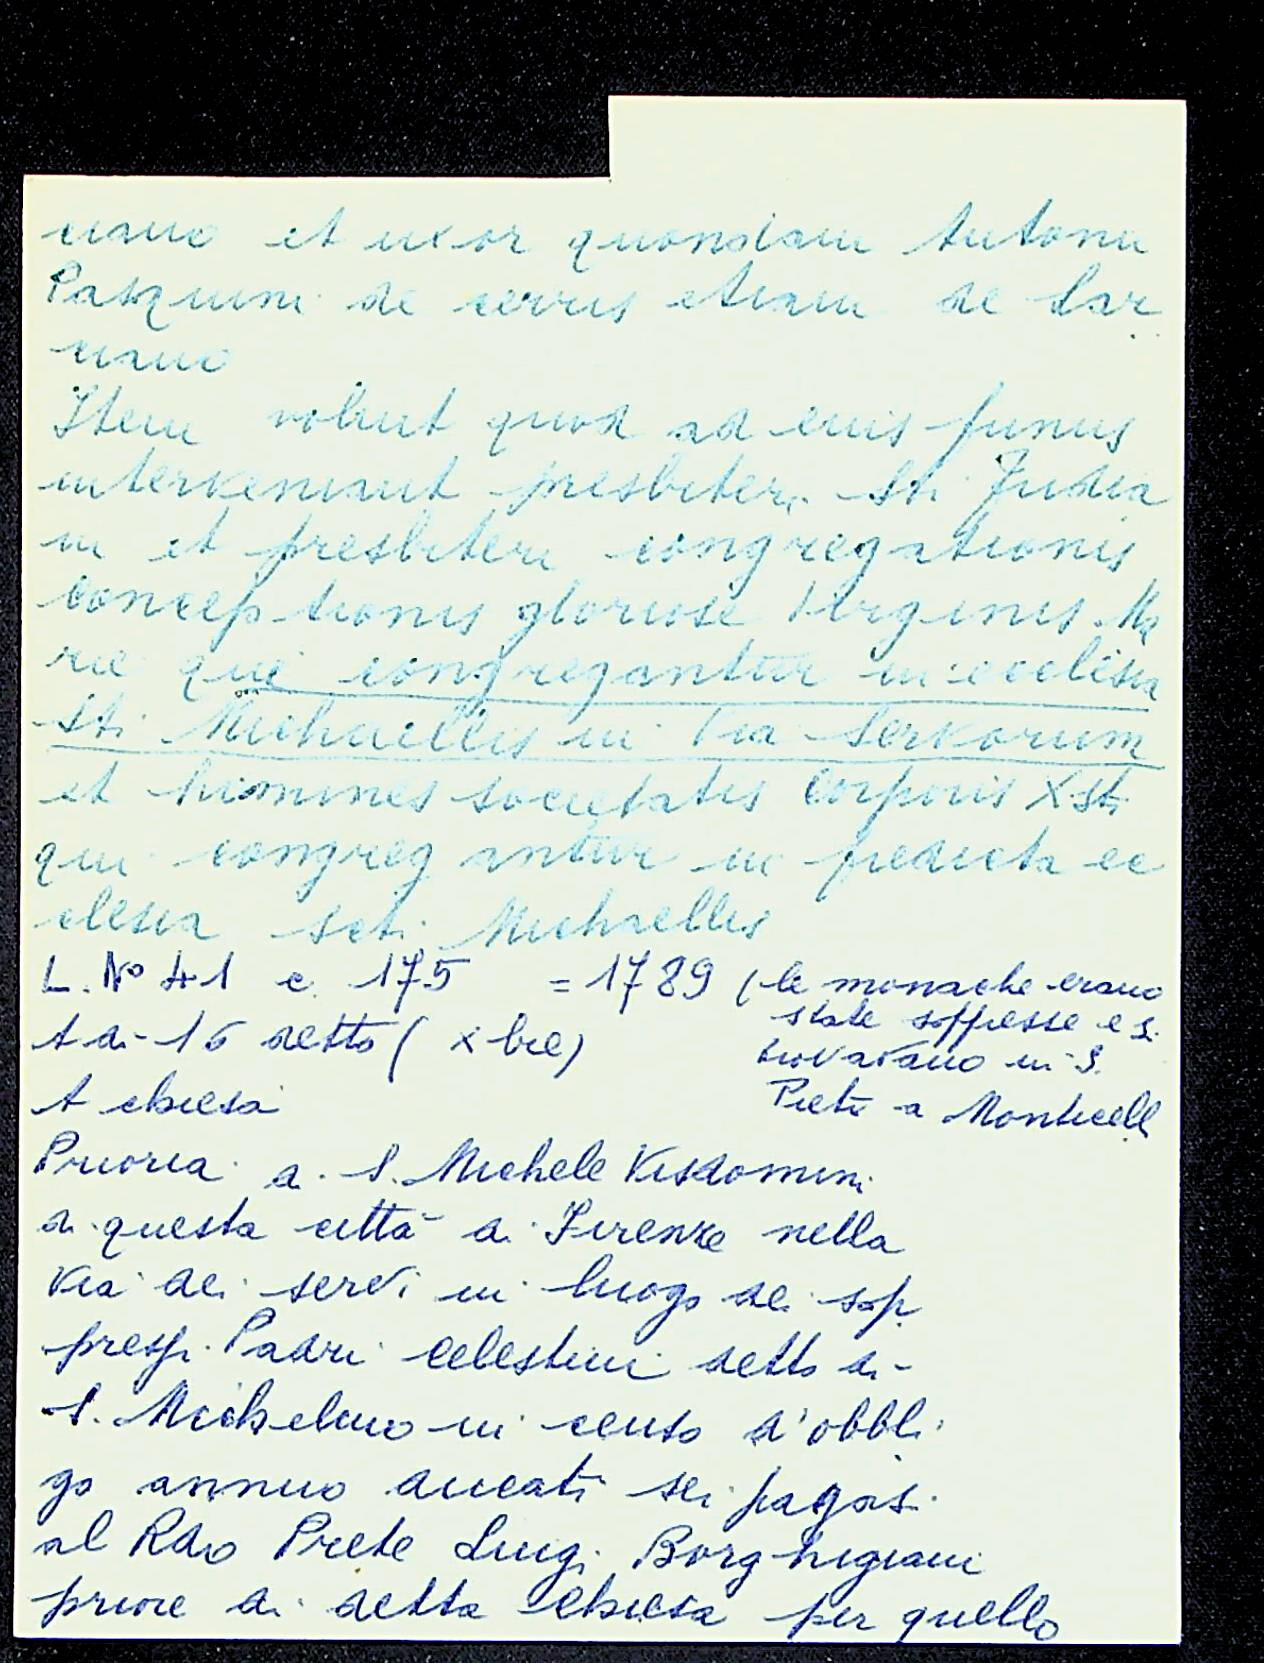 nano et uxor quondam Antonii
Pasquini de cerris etiam de Lar
nano
Item voluit quod ad eius funus
interveniant presbiteri Sti Judia
ni et presbiteri congregationis
conceptionis gloriose Virginis Ma
rie que congregantur in ecclesia
Sti Michaellis in Via Servorum
et homines societatis Corporis Xsti
qui congregantur in predicta ec
clesia scti Michaellis
L. N° 41 c. 175 = 1789 (le monache erano
state soppresse e si
trovavano in S.
Pietro a Monticelli
A di 16 detto (xbre)
A chiesa
Prioria di S. Michele Visdomini
di questa città di Firenze nella
Via dei Servi in luogo dei sop
pressi Padri Celestini detto di
S. Michelino in censo d'obbli
go annuo ducati sei pagasi
al Rdo Prete Luigi Borghigiani
priore di detta chiesa per quello